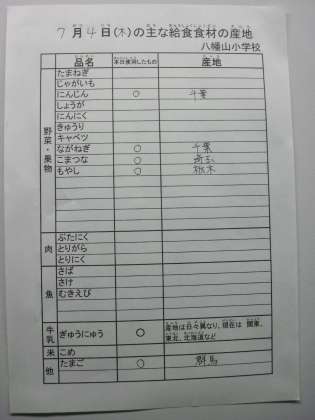 7月4日(木)の主な給食食材の産地
八幡山小学校
品名 本日使用したもの 産地
野菜・果物
たまねぎ
じゃがいも
にんじん ○ 千葉
しょうが
にんにく
きゅうり
キャベツ
ながねぎ ○ 千葉
こまつな ○ 埼玉
もやし ○ 栃木
肉
ぶたにく
とりがら
とりにく
魚
さば
さけ
むきえび
牛乳 ぎゅうにゅう ○ 産地は日々異なり、現在は 関東、
東北、北海道など
米 こめ
他 たまご ○ 群馬